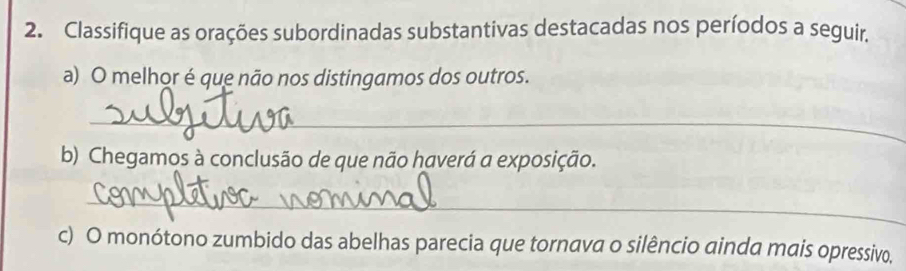 2. Classifique as orações subordinadas substantivas destacadas nos períodos a seguir.
a) O melhor é que não nos distingamos dos outros.
subjetiva
b) Chegamos à conclusão de que não haverá a exposição.
completiva nominal
c) O monótono zumbido das abelhas parecia que tornava o silêncio ainda mais opressivo.